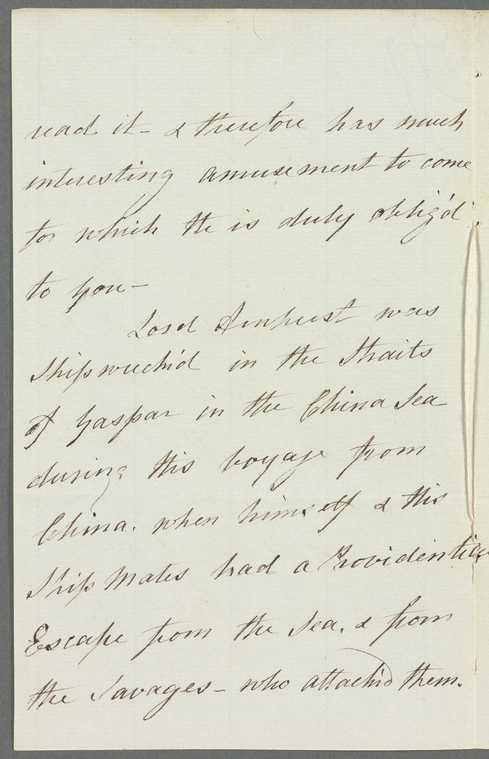 read it - & therefore has much
interesting amusement to come
for which He is duly oblig'd
to you -
Lord Amherst was
Shipwreck'd in the Straits
of Gaspar in the China Sea
during His voyage from
China. when himself & His
Ship Mates had a Providential
Escape from the Sea. & from
the Savages - who attack'd them.